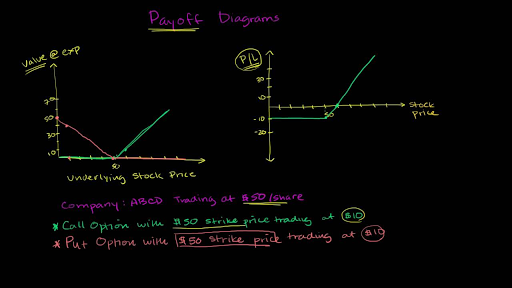 Payoff Diagrams
Value @ exp
P/L
70
50
30
10
50
Underlying Stock Price
20
10
-10
-20
50
Stock Price
Company: ABCD Trading at $50/share
* Call Option with $50 strike price trading at $10
* Put Option with $50 strike price trading at $10